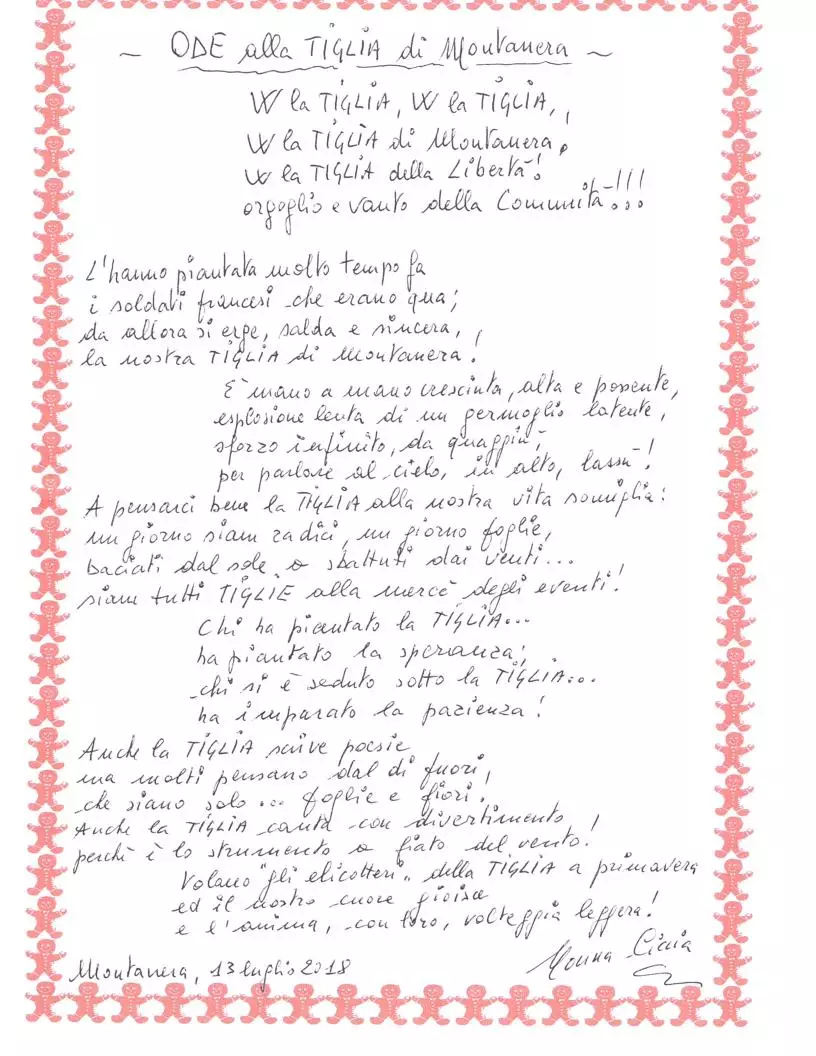 ~ ODE alla TIGLIA di Montanera ~
W la TIGLIA, W la TIGLIA,
W la TIGLIA di Montanera,
W la TIGLIA della Libertà!
orgoglio e vanto della Comunità...!!!
L'hanno piantata molto tempo fa
i soldati francesi che erano qua;
da allora si erge, salda e sincera,
la nostra TIGLIA di Montanera!
E' mano a mano cresciuta, alta e possente,
esplosione lenta di un germoglio latente,
sforzo infinito, da quaggiù,
per parlare al cielo, in alto, lassù!
A pensarci bene la TIGLIA alla nostra vita somiglia:
un giorno siam radici, un giorno foglie,
baciati dal sole o sbattuti dai venti...
siam tutti TIGLIE alla mercè degli eventi!
Chi ha piantato la TIGLIA...
ha piantato la speranza;
chi si è seduto sotto la TIGLIA...
ha imparato la pazienza!
Anche la TIGLIA scrive poesie
ma molti pensano dal di fuori,
che siano solo... foglie e fiori.
Anche la TIGLIA canta con divertimento
perchè è lo strumento a fiato del vento!
Volano "gli elicotteri" della TIGLIA a primavera
ed il nostro cuore gioisce
e l'anima, con loro, volteggia leggera!
Montanera, 13 luglio 2018
Monna Ciccia